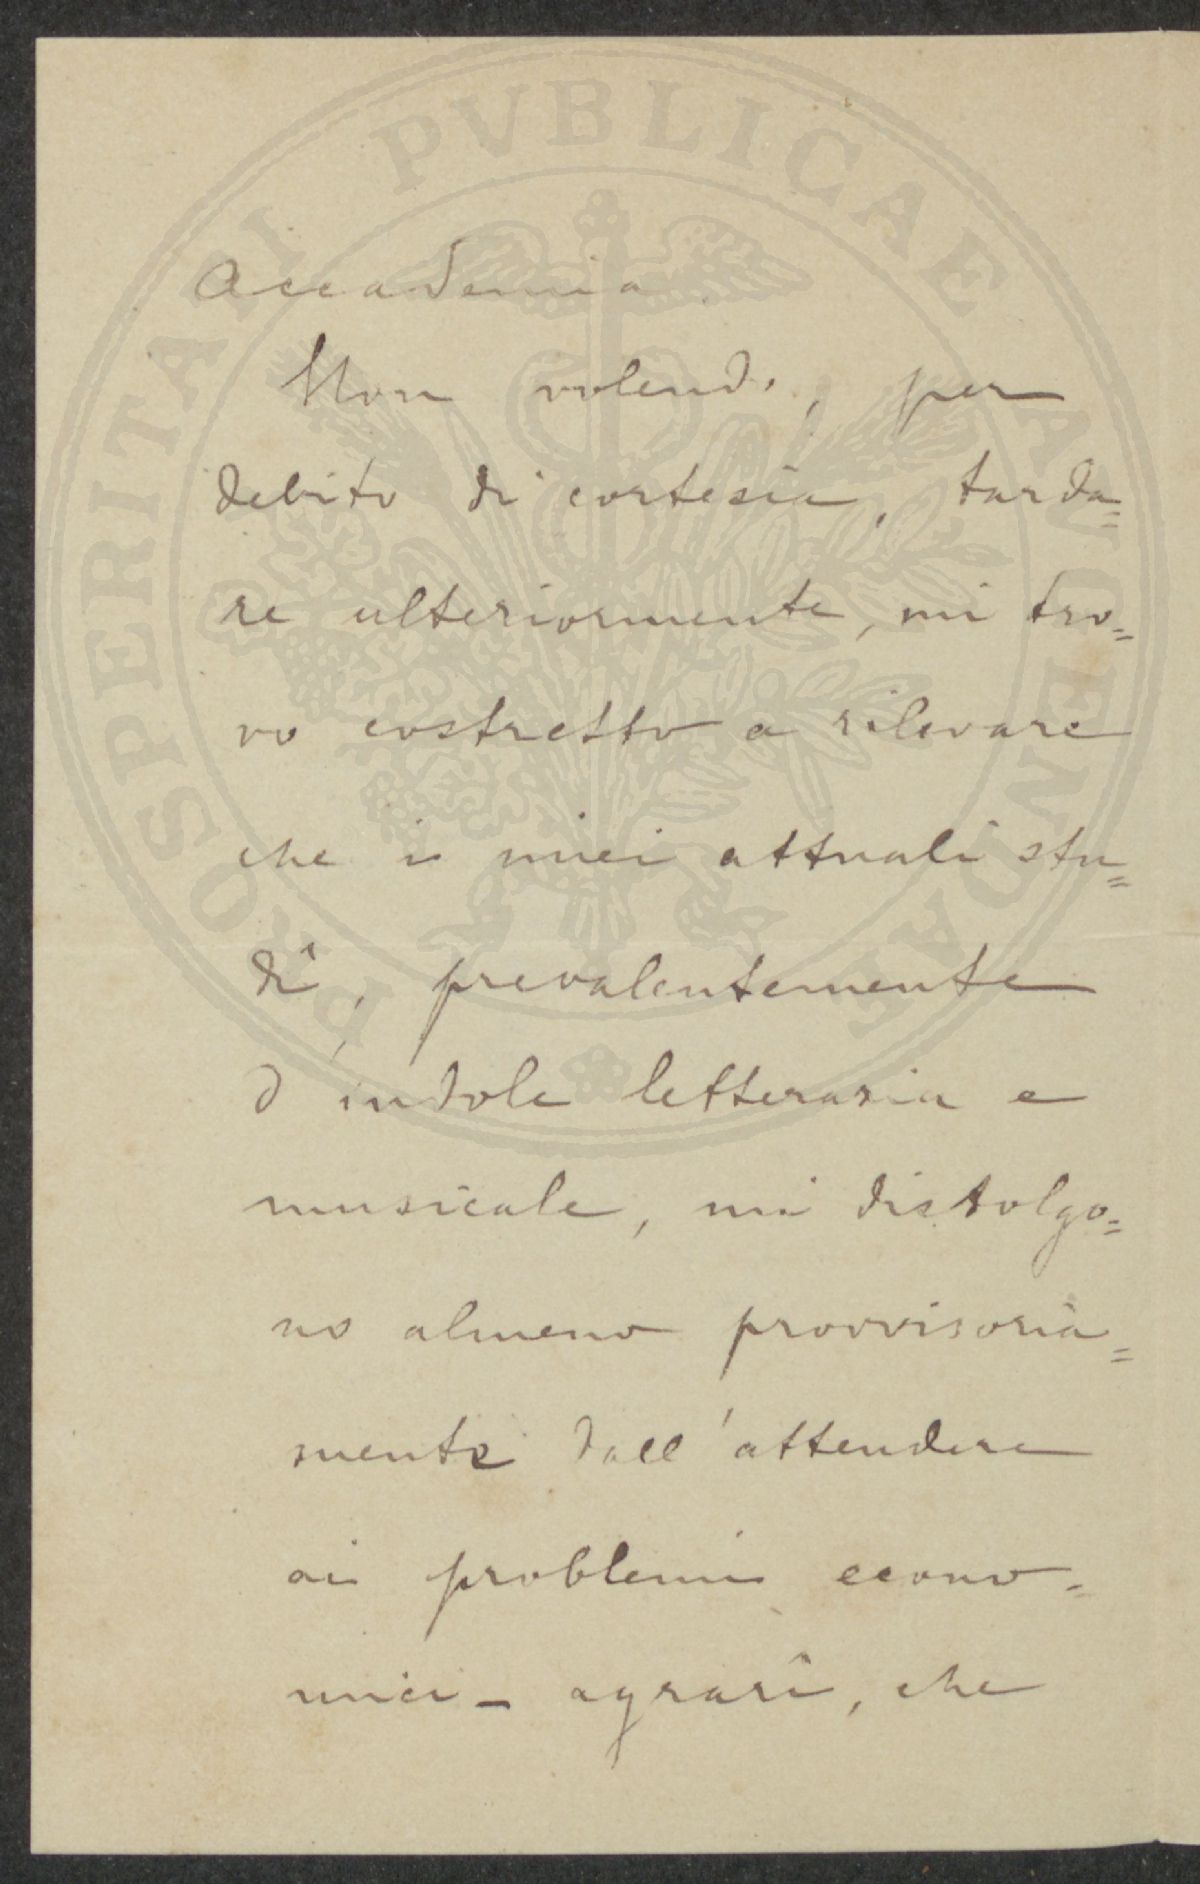 PROSPERITATI PVBLICAE AVGENDAE
Accademia.
Non volendo, per
debito di cortesia, tarda=
re ulteriormente, mi tro=
vo costretto a rilevare
che i miei attuali stu=
dî, prevalentemente
d'indole letteraria e
musicale, mi distolgo=
no almeno provvisoria=
mente dall'attendere
ai problemi econo=
mici - agrarî, che